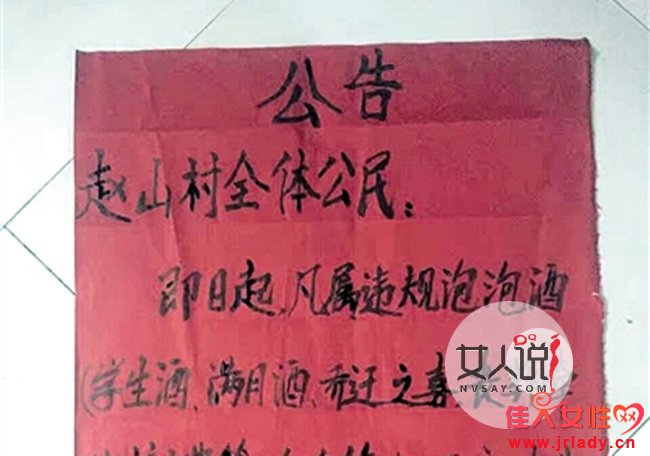 公告
赵山村全体公民：
即日起，凡属违规泡泡酒
（学生酒、满月酒、乔迁之喜、
女人说
NVSAY.COM
佳人女性网
www.jrlady.cn